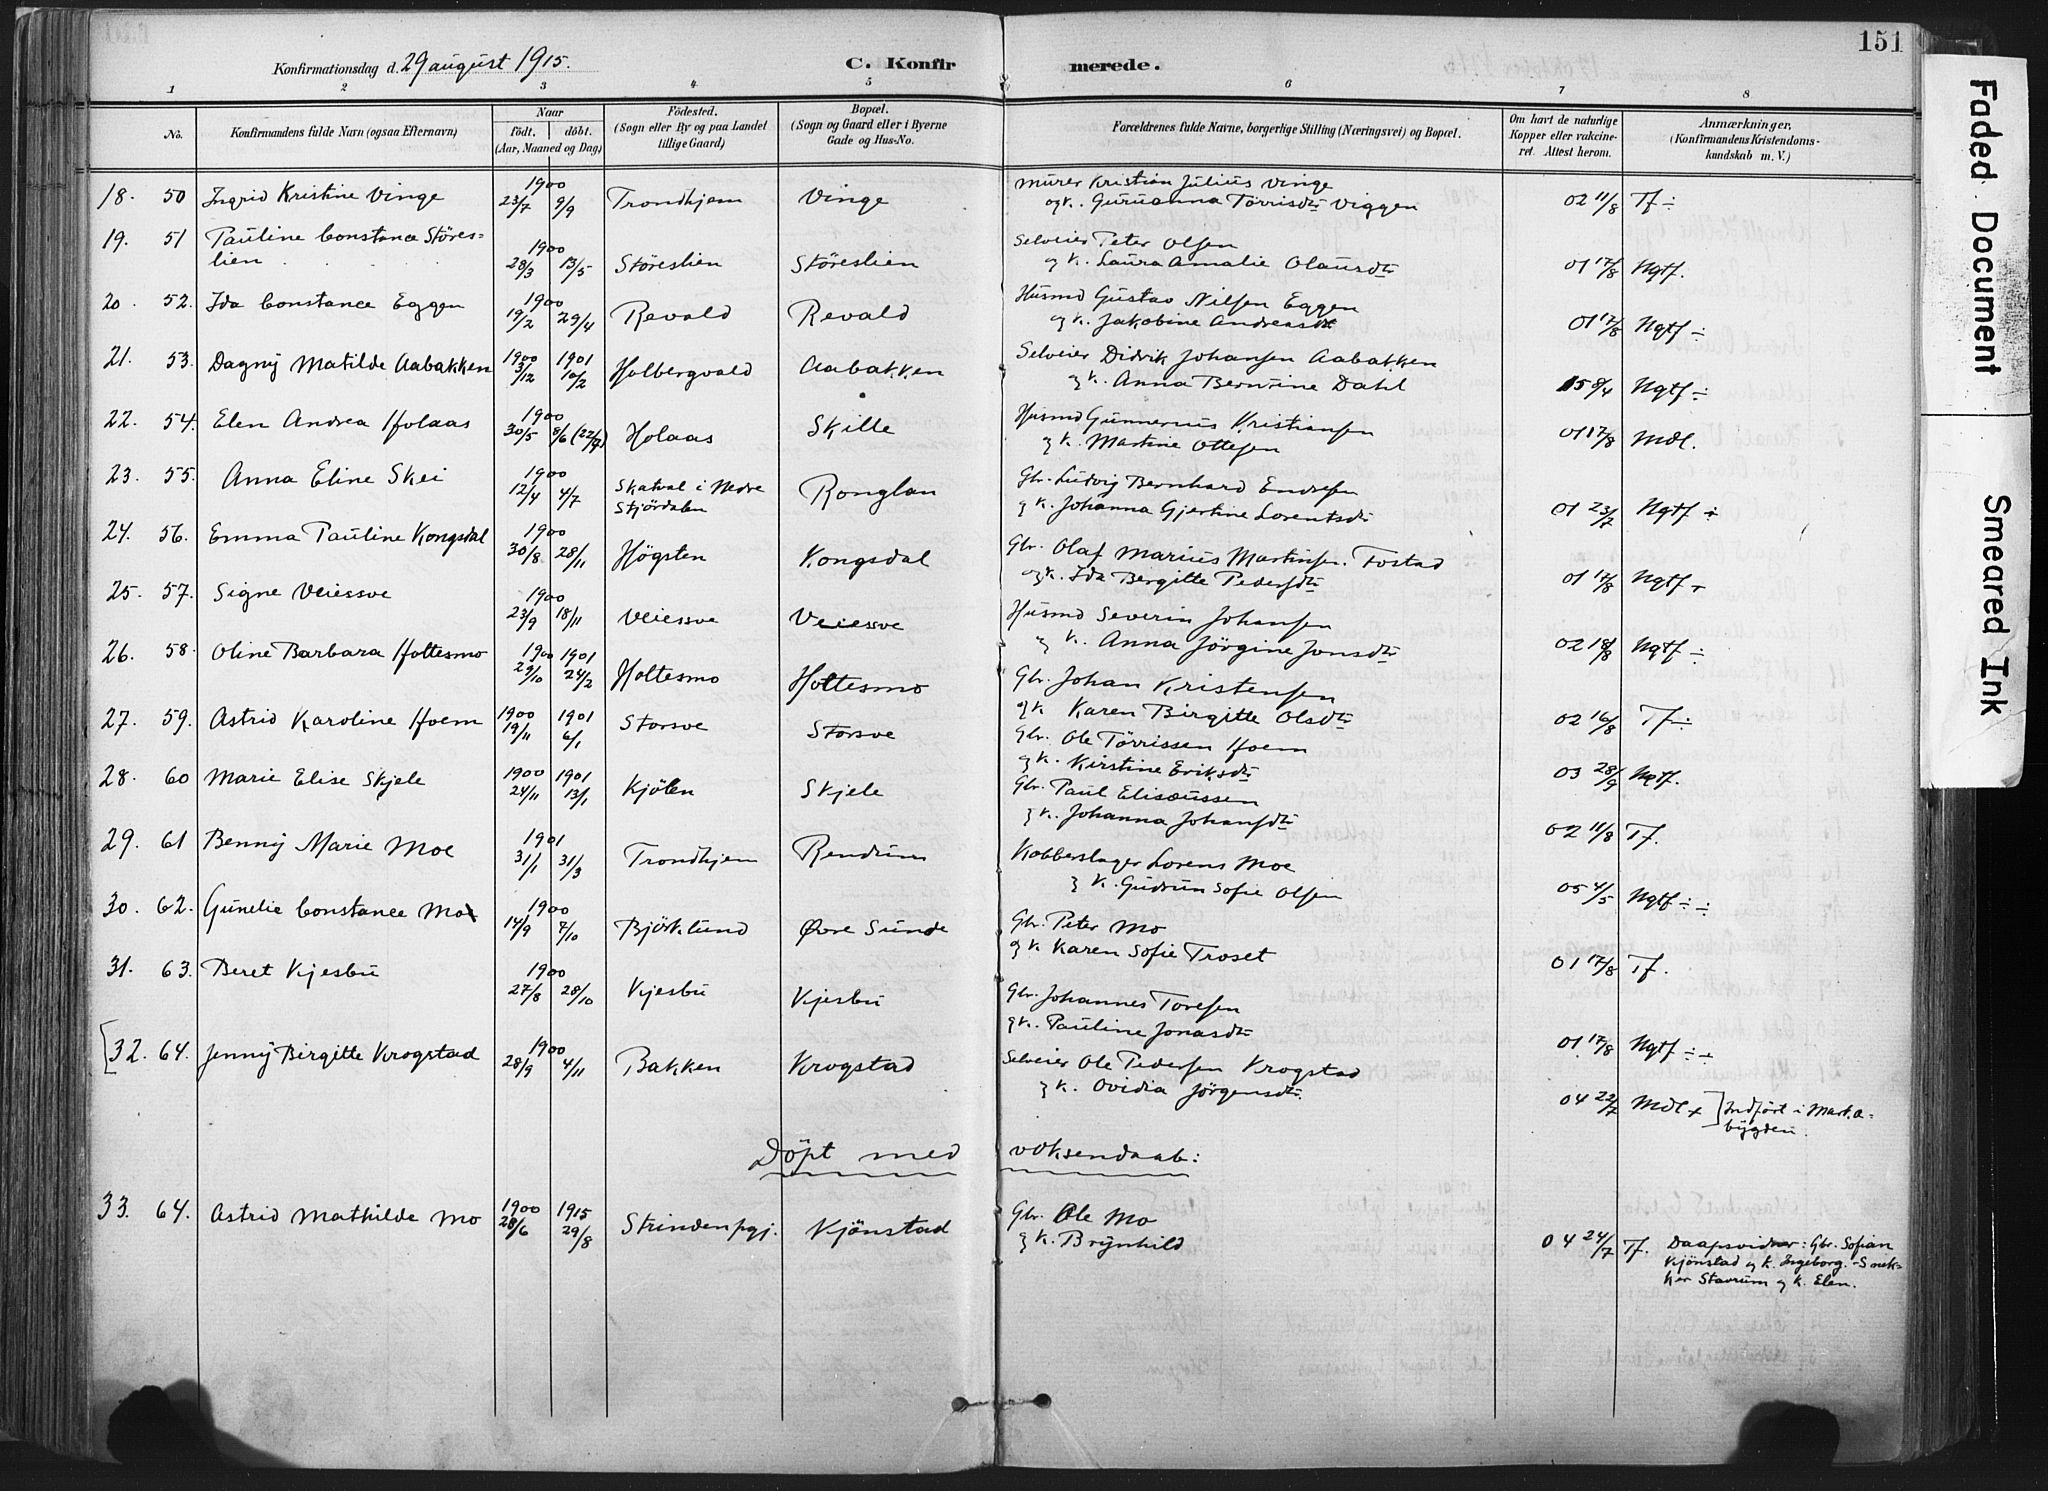 151
Konfirmationsdag d. 29 august 1915.
C. Konfirmerede.
1 2 3 4 5 6 7 8
No. Konfirmandens fulde Navn (ogsaa Efternavn) Naar födt. döbt. (Aar, Maaned og Dag) Födested. (Sogn eller By og paa Landet tillige Gaard) Bopæl. (Sogn og Gaard eller i Byerne Gade og Hus-No. Forældrenes fulde Navne, borgerlige Stilling (Næringsvei) og Bopæl. Om havt de naturlige Kopper eller vakcineret. Attest herom. Anmærkninger. (Konfirmandens Kristendomskundskab m. V.)
18. 50 Ingrid Kristine Vinge 1900 23/7 9/9 Trondhjem Vinge Murer Kristian Julius Vinge
og k. Guruanna Törrisdtr Viggen 02 11/8 Tf ÷
19. 51 Pauline Constance Störes-
lien 1900 28/3 13/5 Störeslien Störeslien Selveier Peter Olsen
og k. Laura Amalie Olausdtr 01 17/8 Ngtf.
20 52. Ida Constance Eggen 1900 19/2 29/4 Revald Revald Husmd Gustav Nilsen Eggen
og k. Jakobine Andreasdtr 01 17/8 Ngtf ÷
21. 53. Dagny Matilde Aabakken 1900 3/12 1901 10/2 Holbergvald Aabakken Selveier Didrik Johansen Aabakken
og k. Anna Berntine Dahl 15 8/4 Ngtf ÷
22. 54. Elen Andrea Holaas 1900 30/5 8/6 (22/7) Holaas Skille Husmd Gunnerius Kristiansen
og k. Martine Ottesen 01 17/8 Mdl.
23. 55. Anna Eline Skei 1900 12/4 4/7 Skatval i Nedre Stjördalen Ronglan Gbr. Ludvig Bernhard Endresen
og k. Johanna Gjertine Lorentsdtr 01 23/7 Ngtf +
24. 56. Emma Pauline Kongsdal 1900 30/8 28/11 Högsten Kongsdal Gbr. Olaf Marius Martinsen Fostad
og k. Ida Bergitte Pedersdtr 01 17/8 Ngtf +
25. 57. Signe Veiessve 1900 23/9 18/11 Veiessve Veiessve Husmd Severin Johansen
og k. Anna Jörgine Jonsdtr 02 18/8 Ngtf ÷
26. 58. Oline Barbara Holtesmo 1900 29/10 1901 24/2 Holtesmo Holtesmo Gbr. Johan Kristensen
og k Karen Birgitte Olsdtr 02 16/8 Tf ÷
27. 59. Astrid Karoline Hoem 1900 19/11 1901 6/1 Storsve Storsve Gbr. Ole Törrissen Hoem
og k. Kirstine Eriksdtr 03 28/9 Ngtf.
28. 60 Marie Elise Skjele 1900 24/11 1901 13/1 Kjölen Skjele Gbr. Paul Elisæussen
og k. Johanna Johansdtr 02 11/8 Tf.
29. 61 Benny Marie Moe 1901 31/1 31/3 Trondhjem Rendum Kobberslager Lorens Moe
og k. Gudrun Sofie Olsen 05 4/5 Ngtf ÷ ÷
30. 62. Gunelie Constance Mo 1900 14/9 7/10 Björklund Øvre Sunde Gbr. Peter Mo
og k Karen Sofie Troset 01 17/8 Tf.
31. 63. Beret Kjesbu 1900 27/8 28/10 Kjesbu Kjesbu Gbr. Johannes Toresen
og k. Pauline Jonasdtr 01 17/8 Ngtf ÷ ÷
[32. 64. Jenny Birgitte Krogstad 1900 28/9 4/11 Bakken Krogstad Selveier Ole Pedersen Krogstad
og k. Ovidia Jörgensdtr. 04 22/7 Mdl + ] Indfört i Markabygden.
Döpt med voksendaab:
33. 64. Astrid Mathilde Mo 1900 28/6 1915 29/8 Strinden pgj. Kjönstad Gbr. Ole Mo
og k. Brynhild 04 24/7 Tf. Daapsvidner: Gbr. Sofian
Kjönstad og k. Ingeborg. - Snek-
ker Stavrum og k. Elen.
Faded Document
Smeared Ink